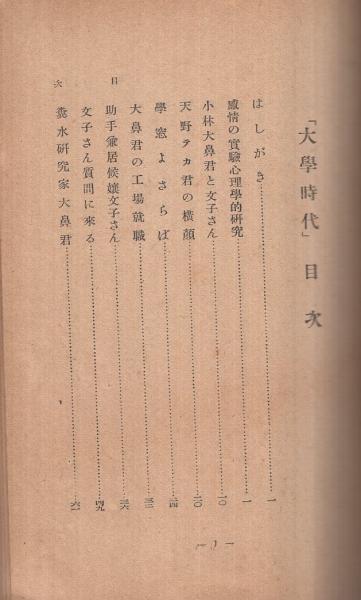 「大學時代」目次
はしがき…………一
癒情の實驗心理學的研究…………一
小林大鼻君と文子さん…………一〇
天野テカ君の橫顏…………二〇
學窓よさらば…………二四
大鼻君の工場就職…………三三
助手兼居候嬢文子さん…………三六
文子さん質問に來る…………四九
糞水硏究家大鼻君…………六一
目次
— 1 —